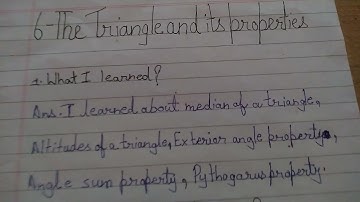 6-The Triangle and its properties
1. What I learned?
Ans:- I learned about median of a triangle,
Altitudes of a triangle, Exterior angle property,
Angle sum property, Pythogarus property.